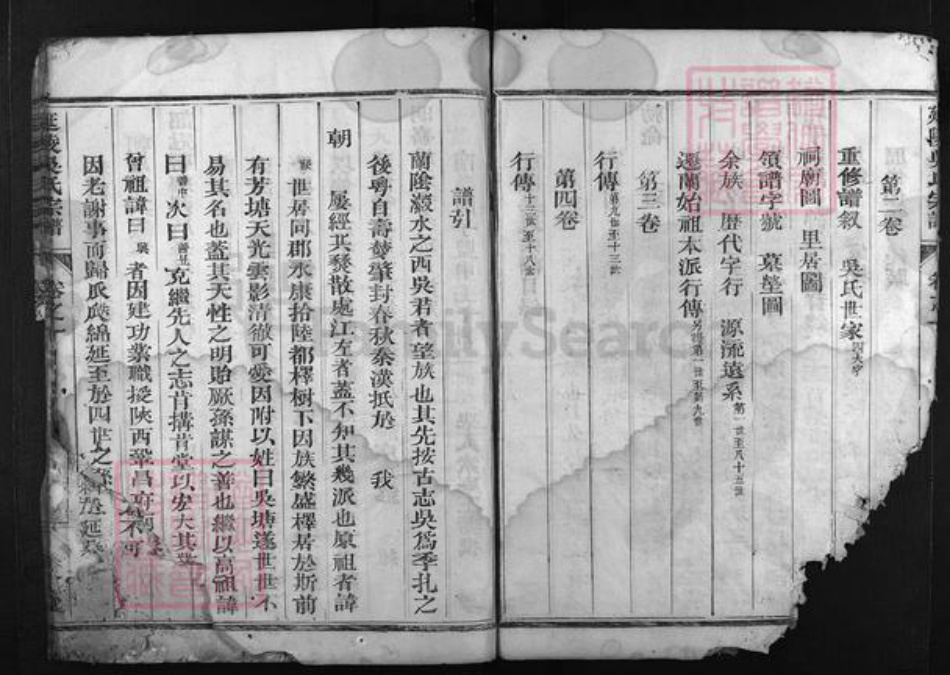 延陵吳氏宗譜
第二卷
重修譜叙 吳氏世家
祠廟圖 里居圖
領譜字號 墓塋圖
余族 歷代字行 源流遠系 第一世至八十五世
遷蘭始祖本派行傳 第一世至第九世
第三卷
行傳 第九世至十三世
第四卷
行傳 十三世至十八世
譜引
蘭陰瀫水之西吳君者望族也其先按古志吳爲季扎之
後粤自壽夢肇封春秋秦漢抵於 我
朝 屢經兵燹散處江左者蓋不知其幾派也原祖者諱
世居同郡永康拾陸都檡樹下因族繁盛擇居於斯前
有芳塘天光雲影清徹可愛因附以姓曰吳塘遂世世不
易其名也蓋其天性之明貽厥孫謀之善也繼以高祖諱
曰 次曰 克繼先人之志肯搆肯堂以宏大其
曾祖諱曰 者因建功業職授陝西鞏昌府 不可
因老謝事而歸瓜瓞綿延至於四世之孫 延
延陵吳氏宗譜 卷之一